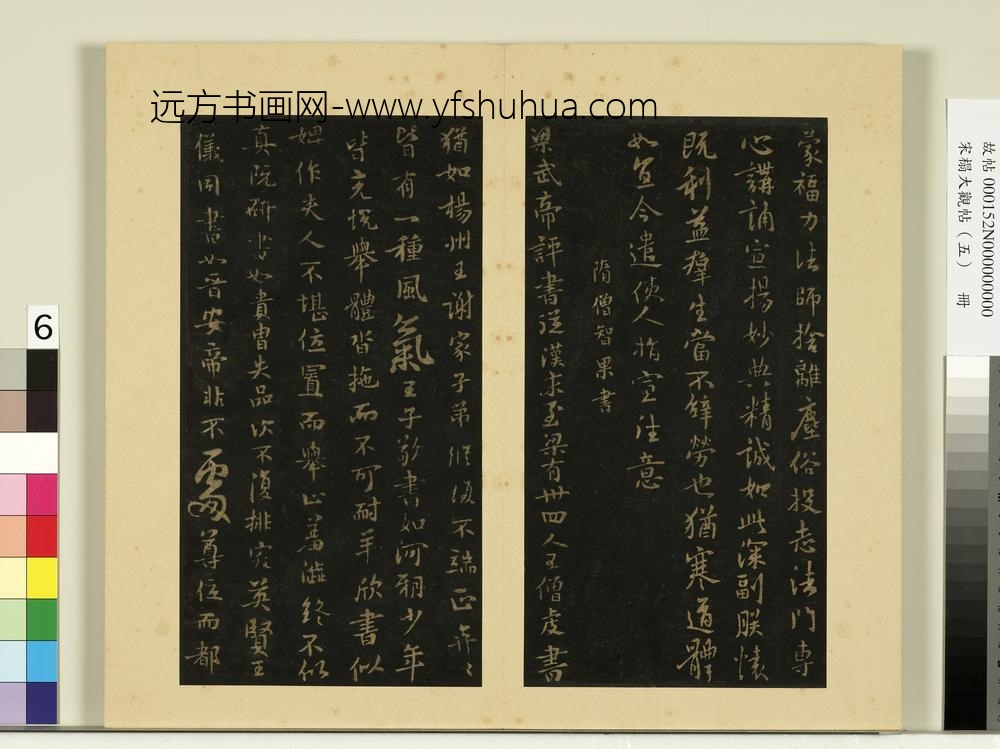 远方书画网-www.yfshuhua.com
蒙福力法師捨離塵俗投志法門專
心講誦宣揚妙典精誠如此深副朕懷
既利益羣生當不辞勞也猶寒道體
如宜今遣使人指宣往意
隋僧智果書
梁武帝評書從漢末至梁有卅四人王僧虔書
猶如楊州王謝家子弟縱復不端正奕〻
皆有一種風氣王子敬書如河朔少年
皆充悅舉體沓拖而不可耐羊欣書似
婢作夫人不堪位置而舉止羞澁終不似
真阮研書如貴胄失品次不復排突英賢王
儀同書如晋安帝非不處尊位而都
故帖000152N000000000
宋榻大觀帖（五） 冊
6